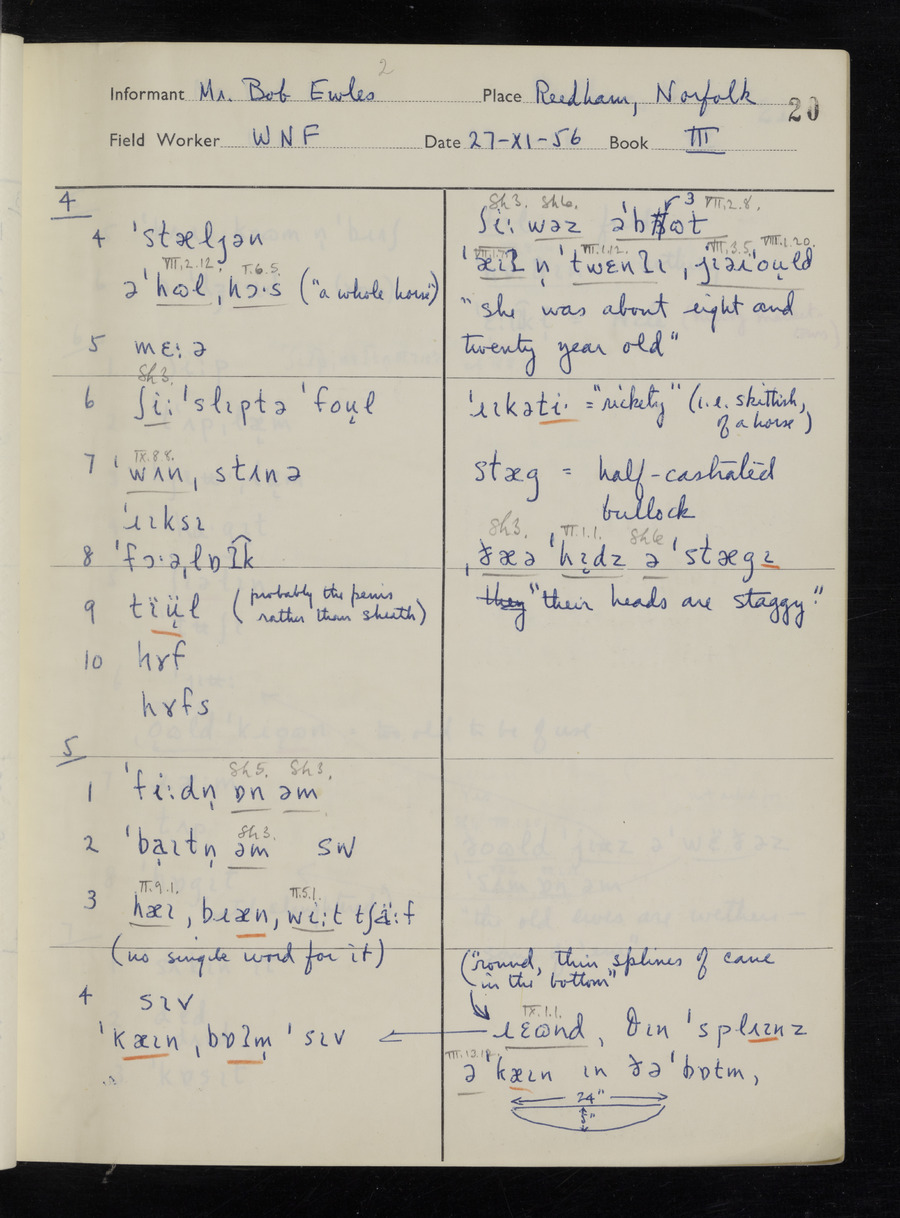 2
Informant Mr. Bob Ewles Place Reedham, Norfolk 20
Field Worker WNF Date 27-XI-56 Book III
4
4 ˈstæljən
VII.2.12. I.6.5.
əˈhɷl ˌhɔ·s ("a whole horse")
5 mɛ: ə
Sh3.
6 ʃi: ˈslɪptə ˈfoʊ̣l
IX.8.8.
7 ˈwʌn ˌstʌnə
ˈɹɪksɪ
8 ˈfɔ·əˌlɒʔk
9 tïụ̈l (probably the penis
rather than sheath)
10 hɤf
hɤfs
5
Sh5. Sh3.
1 ˈfi:dn̩ ɒn əm
Sh3.
2 ˈbạɪtn̩ əm SW
II.9.1. II.5.1.
3 hæɪ, bɪæn, wi:t tʃä:f
(no single word for it)
4 sɪv
ˈkæɪn ˌbɒʔm̩ ˈsɪv
Sh3. Sh6. 3 VII.2.8.
ʃi: wəz əˈbɷt
VII.1.7. VII.1.12. VII.3.5. VIII.1.20.
ˈæɪʔ n̩ ˈtwɛnʔɪ ˌjɪəɹˈoʊld
"she was about eight and
twenty year old"
ˈɹɪkəti· = "rickety" (i.e. skittish,
of a horse)
stæg = half-castrated
bullock
Sh3. VI.1.1. Sh6
ˌðæə ˈhɪ̣dz ə ˈstægɪ
they "their heads are staggy."
("round, thin splines of cane
in the bottom"
IX.1.1.
ɹɛɷnd, θɪn ˈsplʌɪnz
VIII.13.12.
ə ˈkæɪn ɪn ðə ˈbɒtm,
24"
5"